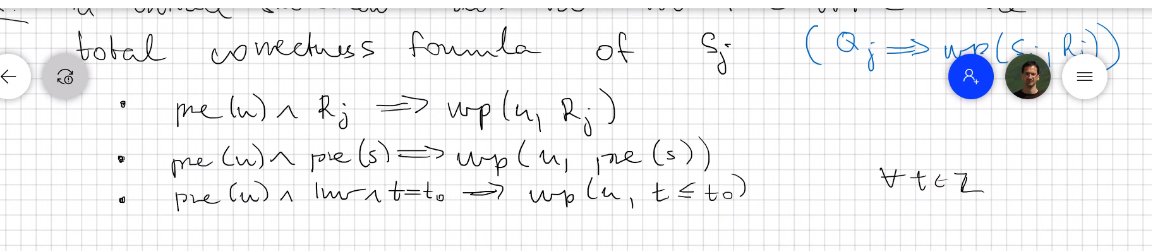 total correctness formula of Sj ( Qj ⟹ wp(Sj, Rj))
• pre(u) ∧ Rj ⟹ wp(u, Rj)
• pre(u) ∧ pre(s) ⟹ wp(u, pre(s))
• pre(u) ∧ Inv ∧ t=t₀ ⟹ wp(u, t ≤ t₀) ∀ t ∈ ℤ